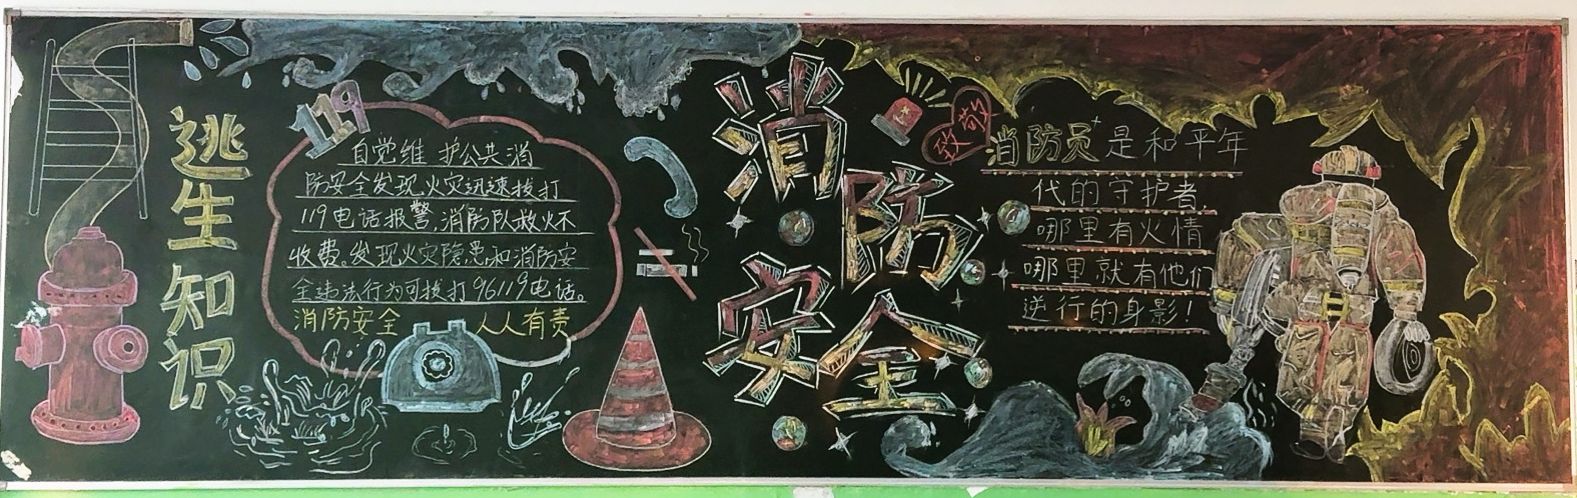 逃生知识
119
自觉维护公共消
防安全发现火灾迅速拨打
119电话报警,消防队救火不
收费。发现火灾隐患和消防安
全违法行为可拨打96119电话。
消防安全 人人有责
消防安全
致敬
消防员是和平年
代的守护者,
哪里有火情
哪里就有他们
逆行的身影!